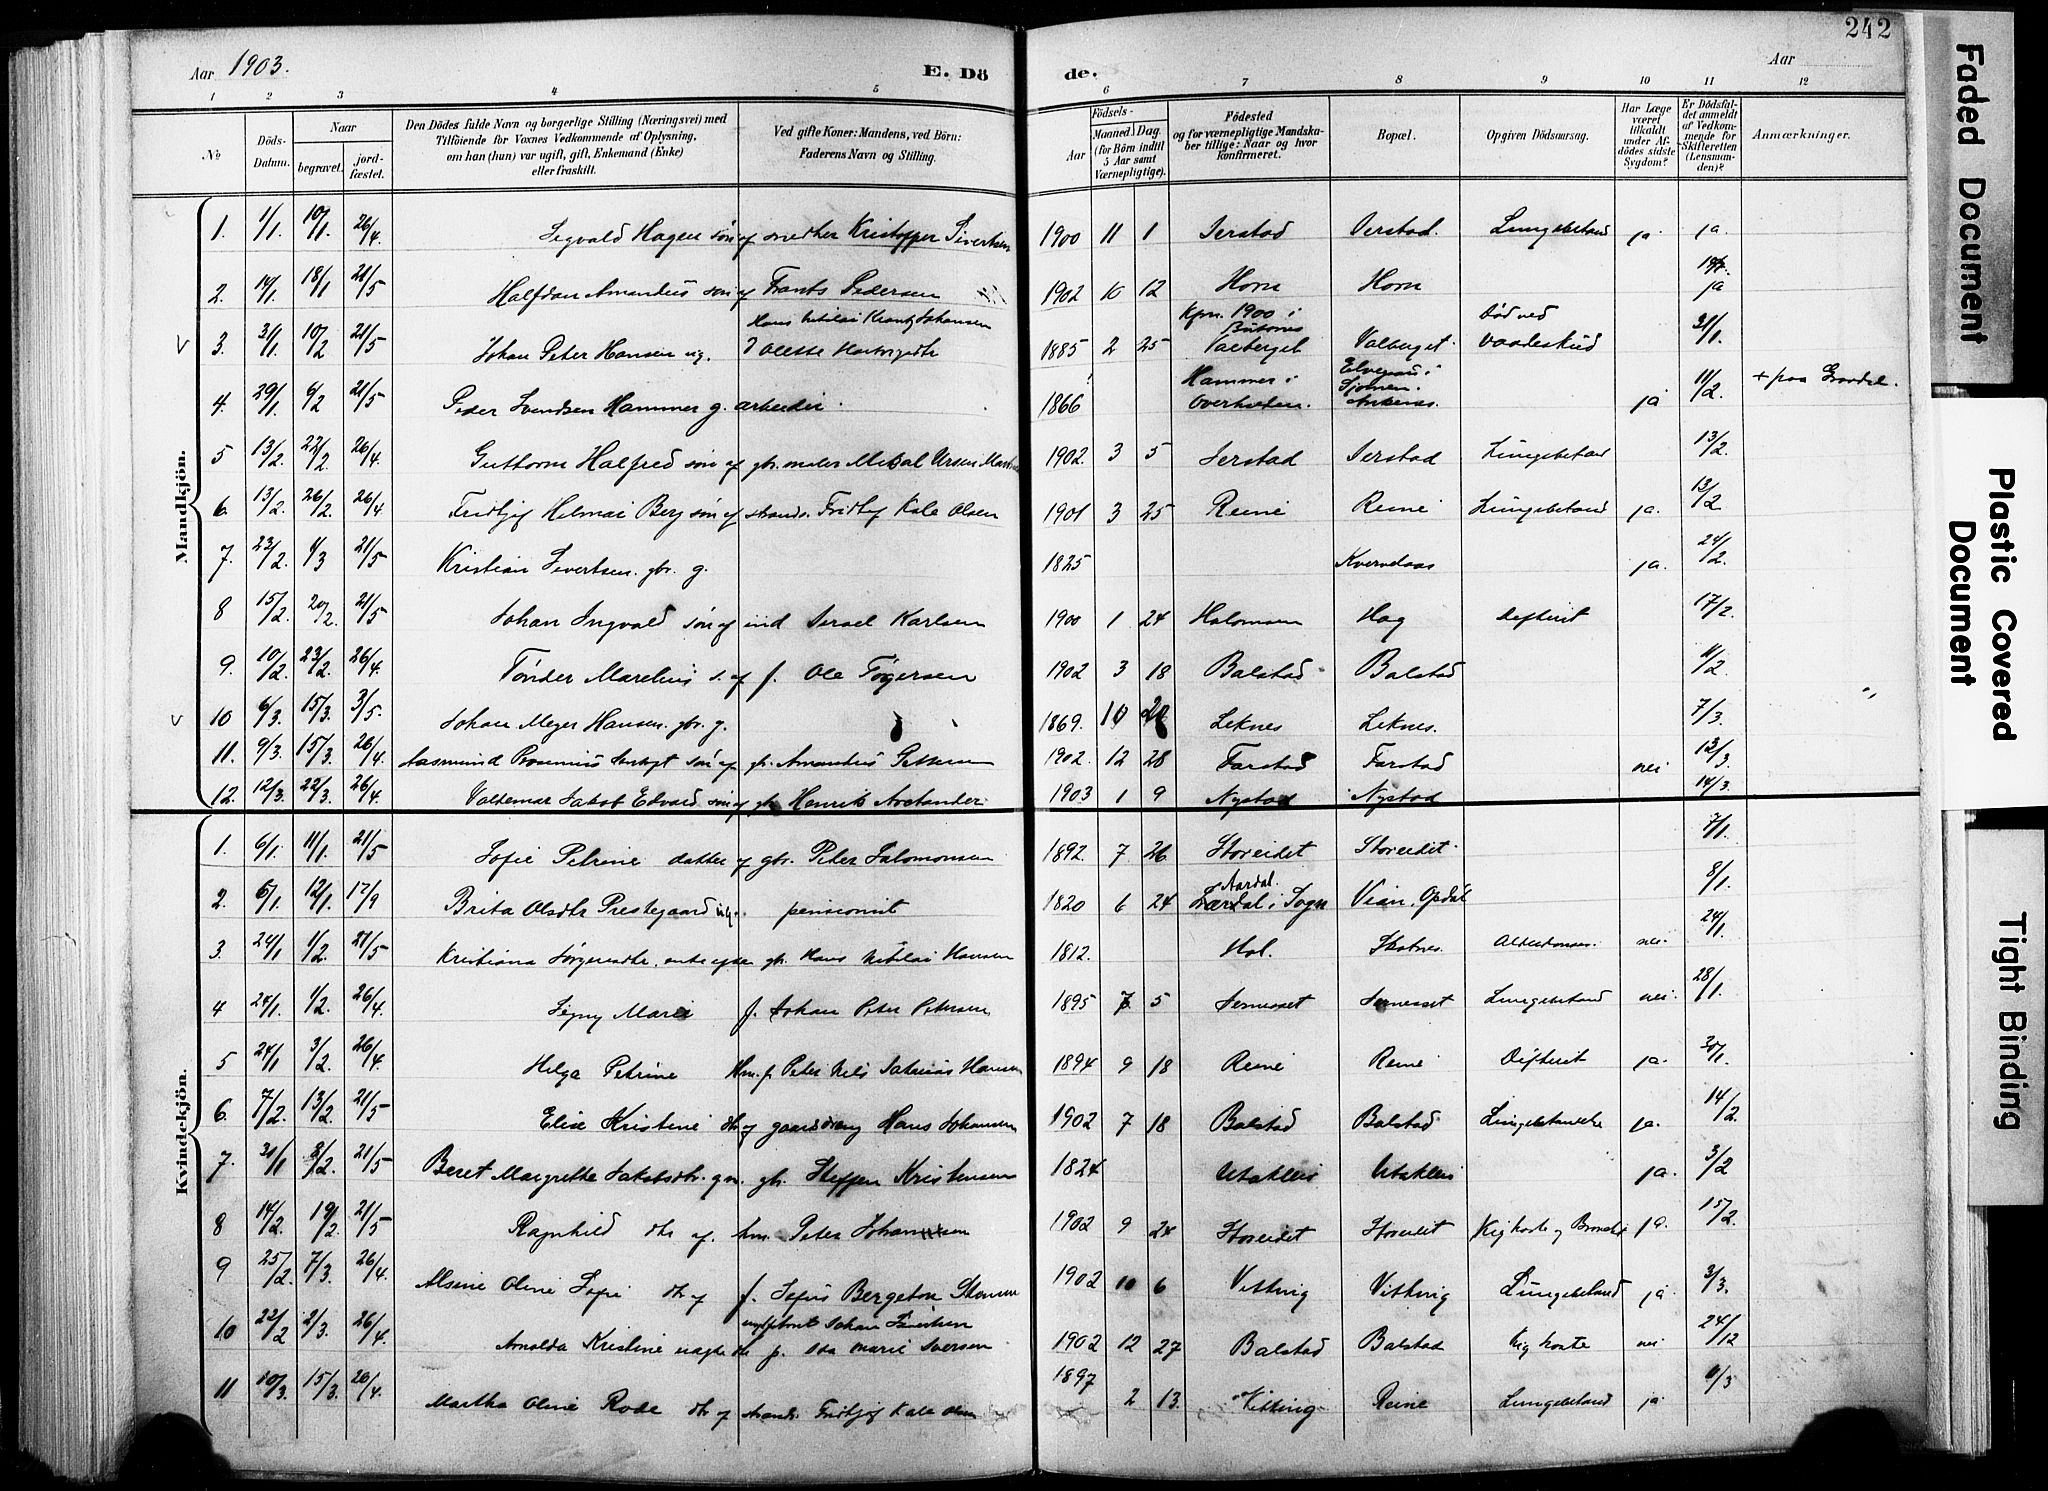 242
Aar 1903.
E. Döde.
Aar
1 2 3 4 5 6 7 8 9 10 11 12
№
Döds-Datum.
Naar
begravet.
jord-fæstet.
Den Dödes fulde Navn og borgerlige Stilling (Næringsvei) med
Tilföiende for Voxnes Vedkommende af Oplysning,
om han (hun) var ugift, gift, Enkemand (Enke)
eller fraskilt.
Ved gifte Koner: Mandens, ved Börn:
Faderens Navn og Stilling.
Födsels-
Aar
Maaned. Dag.
(for Börn indtil
5 Aar samt
Værnepligtige).
Födested
og for værnepligtige Mandska-
ber tillige: Naar og hvor
konfirmeret.
Bopæl.
Opgiven Dödsaarsag.
Har Læge
været
tilkaldt
under Af-
dödes sidste
Sygdom?
Er Dödsfal-
det anmeldt
af Vedkom-
mende for
Skifteretten
(Lensman-
den)?
Anmærkninger.
Mandkjön.
1. 1/1 10/1 26/4. Sigvald Hagen søn af snedker Kristoffer Sivertsen 1900 11 1 Jerstad Jerstad. Lungebetænd ja ja.
2. 14/1. 18/1 21/5 Halfdan Amandus søn af Frants Pedersen 1902 10 12 Horn Horn ja
3. 31/1. 10/2 21/5 Johan Peter Hansen ug. Hans Nikolai Krantz Johansen 1885 2 25 Kfm. 1900 i Valberget Valberget Död ved vaadeskud 31/1.
4. 29/1. 6/2 21/5 Peder Svendsen Hammer g. arbeider. 1866 Hammer i Overhalden. Ankenes. ja 11/2. + paa Gravdal.
5 13/2. 22/2. 26/4. Guttorm Halfred søn af gbr. maler 1902. 3 5 Jerstad Jerstad Lungebetænd 13/2.
6. 13/2. 26/2. 26/4 Fridtjof Hilmar Berg søn af strands. Fridtjof Kale Olsen 1901 3 25 Reine Reine Lungebetænd ja. 13/2
7. 23/2. 1/3 21/5 Kristian Sivertsen. gbr. g. 1825 ja. 24/2.
8 15/2. 20/2. 21/5 Johan Ingvald søn af ind Israel Karlsen 1900 1 24 Hag Difterit 17/2.
9. 10/2. 23/2. 26/4. Tønder Marelius s. af f. Ole Tøgersen 1902 3 18 Balstad Balstad 11/2.
10 6/3. 15/3. 3/5. Johan Meyer Hansen. gbr. g. 1869. 10 Leknes Leknes. 7/3.
11. 9/3. 15/3. 26/4. Aasmund søn af gb. Amandus 1902. 12 28 Farstad Farstad nei 12/3.
12. 12/3. 22/3. 26/4. Valdemar Jakob Edvard søn af gb. Henrik 1903 1 9 Nystad Nystad 14/3.
Kvindekjön.
1. 6/1. 11/1. 21/5 Sofie Petrine datter af gbr. Peter Salomonsen 1892. 7 26 Storeidet Storeidet. 7/1.
2. 6/1 12/1. 17/9 Brita Olsdtr Prestegaard ug. pensionist 1820 6 24 Aardal. Lærdal i Sogn Vian, Opdøl 8/1.
3. 24/1. 1/2. 21/5 Kristiana Jørgensdtr. enke efter gb. Hans Nikolai Hansen 1812. Hol. Skotnes. nei. 24/1.
4 24/1. 1/2. 26/4. Signy Marie f. Johan Peter Petersen 1895 7 5 Lungebetænd nei. 28/1.
5 24/1 3/2. 26/4. Helga Petrine 1894 9 18 Reine Reine Difterit ja. 30/1.
6. 7/2. 13/2. 21/5 Elise Kristine dtr. af gaardsdreng Hans Johansen 1902 7 18 Balstad Balstad ja. 14/2.
7. 31/1 8/2. 21/5 Beret Margrethe Jakobsdtr. gm. gbr. Steffen Kristensen 1824 Utakleiv Utakleiv ja. 3/2
8 14/2. 19/2. 21/5 Ragnhild dtr af. hm. Peter 1902 9 24 Storeidet Storeidet Kighoste og Bronchit ja. 15/2.
9 25/2 7/3. 26/4. Alvine Oline Sofie dtr af f. Sofus Bergeton 1902 10 6 Vitting Vitting Lungebetænd ja 3/3.
10 22/2 2/3. 26/4. Arnolda Kristine uægte dtr. p. Ida Marie Iversen 1902 12 27 Balstad Balstad kighoste nei 24/12
11 10/3. 15/3. 26/4. Martha Oline Rode dtr af strands. Fridtjof Kale Olsen 1897 2 13. Vitting. Reine Lungebetænd ja
Faded Document
Plastic Covered Document
Tight Binding